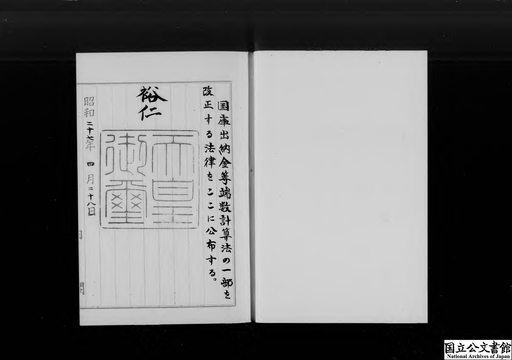 国庫出納金等端数計算法の一部を
改正する法律をここに公布する。
裕仁
天皇
御璽
昭和二十七年四月二十八日
国立公文書館
National Archives of Japan